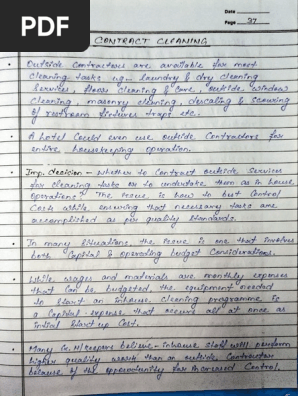 PDF
Date
Page 37
CONTRACT CLEANING
Outside Contractors are available for most
cleaning tasks eg. - laundry & dry cleaning
services, floor cleaning & care, outside window
cleaning, masonry cleaning, descaling & scouring
of restroom fixtures traps etc.
A hotel could even use outside Contractors for
entire housekeeping operation.
Imp. decision - Whether to Contract outside services
for cleaning tasks or to undertake them as in house
operations? The issue is how to best Control
Costs while ensuring that necessary tasks are
accomplished as per quality standards.
In many situations, the issue is one that involves
both Capital & operating budget Considerations.
While wages and materials are monthly expenses
that can be budgeted, the equipment needed
to start an inhouse cleaning programme is
a Capital expense that occurs all at once as
initial start up Cost.
Many Ex. H/keepers believe - inhouse staff will perform
higher quality work than an outside Contractor
because of the opportunity for increased Control.